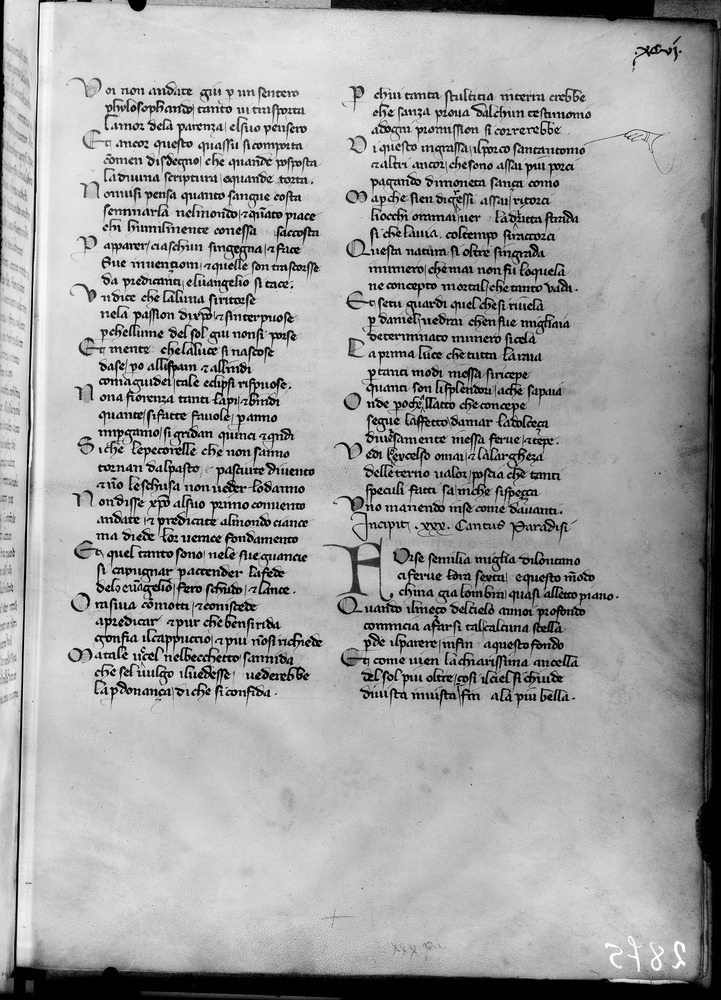 .xcvj.
Voi non andate giu p un sentero
phylosophando, tanto vi trasporta
lamor dela parenza, elsuo pensero
Et ancor questo quassu si comporta
comen disdegno, che quande posposta
la diuina scriptura, equande torta.
Nonuisi pensa quanto sangue costa
seminarla nelmondo, & quãto piace
chi humilmente conessa saccosta
Papparer, ciaschun singegna, & face
Sue inuentioni, & quelle son trascorse
da predicanti, eluangelio si tace.
Vndice che laluna siritorse
nela passion dixpo, & sinterpuose
pchellume del sol giu nonsi porse
Et mente chelaluce si nascose
dase, po allispani & allindi
comaguidei, tale eclipsi rispuose.
Nona fiorenza tanti lapi, & bindi
quante, sifatte fauole, p anno
inpgamo, si gridan quinci & qndi
Siche lepecorelle che non sanno
tornan dalpasto, pasciute diuento
& nõ lescusa non ueder lodanno
Nondisse xpo alsuo primo conuento
andate, & predicate almondo ciance
ma diede lor uerace fondamento
Et quel tanto sono, nele sue guancie
si capugnar paccender lafede
delo euãgelio, fero schudo, & lance.
Orasiua cõmotti, & coniscede
apredicar & pur che bensirida
gonfia ilcappuccio, & piu nõsi richiede
Matale ucel nelbecchetto sannida
che sel uulgo iluedesse, uederebbe
la pdonança, diche si confida.
Pchui tanta stultitia interra crebbe
che sanza proua dalchun testimonio
adogni promission si correrebbe
Di questo ingrassa, ilporco santantonio
& altri ancor, che sono assai piu porci
pagando dimoneta sança conio
Ma pche sien digressi assai, ritorci
liocchi oramai uer la dritta strada
si che lauia. coltempo siraccorci
Questa natura si oltre singrada
innumero, che mai non fu loquela
ne concepto mortal, che tanto vada.
Et setu guardi quel chesi riuela
p daniel, uedrai chensue migliaia
determinato numero sicela
La prima luce che tutta laraia
ptanti modi inessa siricepe
quanti son lisplendori, ache sapaia
Onde poche llatto che concepe
segue laffetto, damar ladolceça
diuersamente inessa ferue, & tepe.
Vedi leccelso omai, & lalargheza
delleterno ualor, poscia che tanti
speculi fatti sa, inche sispeçça
Vno manendo inse come dauanti.
Incipit .xxx. Cantus Paradisi
FOrse semilia miglia dilontano
ci ferue lora sexta, e questo mõdo
china gia lombra, quasi alletto piano.
Quando ilmeço delcielo annoi profondo
comincia afarsi tal, calcuna stella
pde ilparere, infin aquesto fondo
Et come uien lachiarissima ancella
del sol piu oltre, cosi ilciel si chiude
diuista inuista, fin ala piu bella.
2875